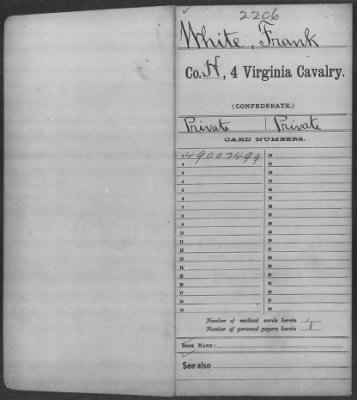 2206
White, Frank
Co. H, 4 Virginia Cavalry.
(CONFEDERATE.)
Private Private
CARD NUMBERS.
1 49007499 20
2 21
3 22
4 23
5 24
6 25
7 26
8 27
9 28
10 29
11 30
12 31
13 32
14 33
15 34
16 35
17 36
18 37
19 38
Number of medical cards herein
Number of personal papers herein
BOOK MARK:
See also